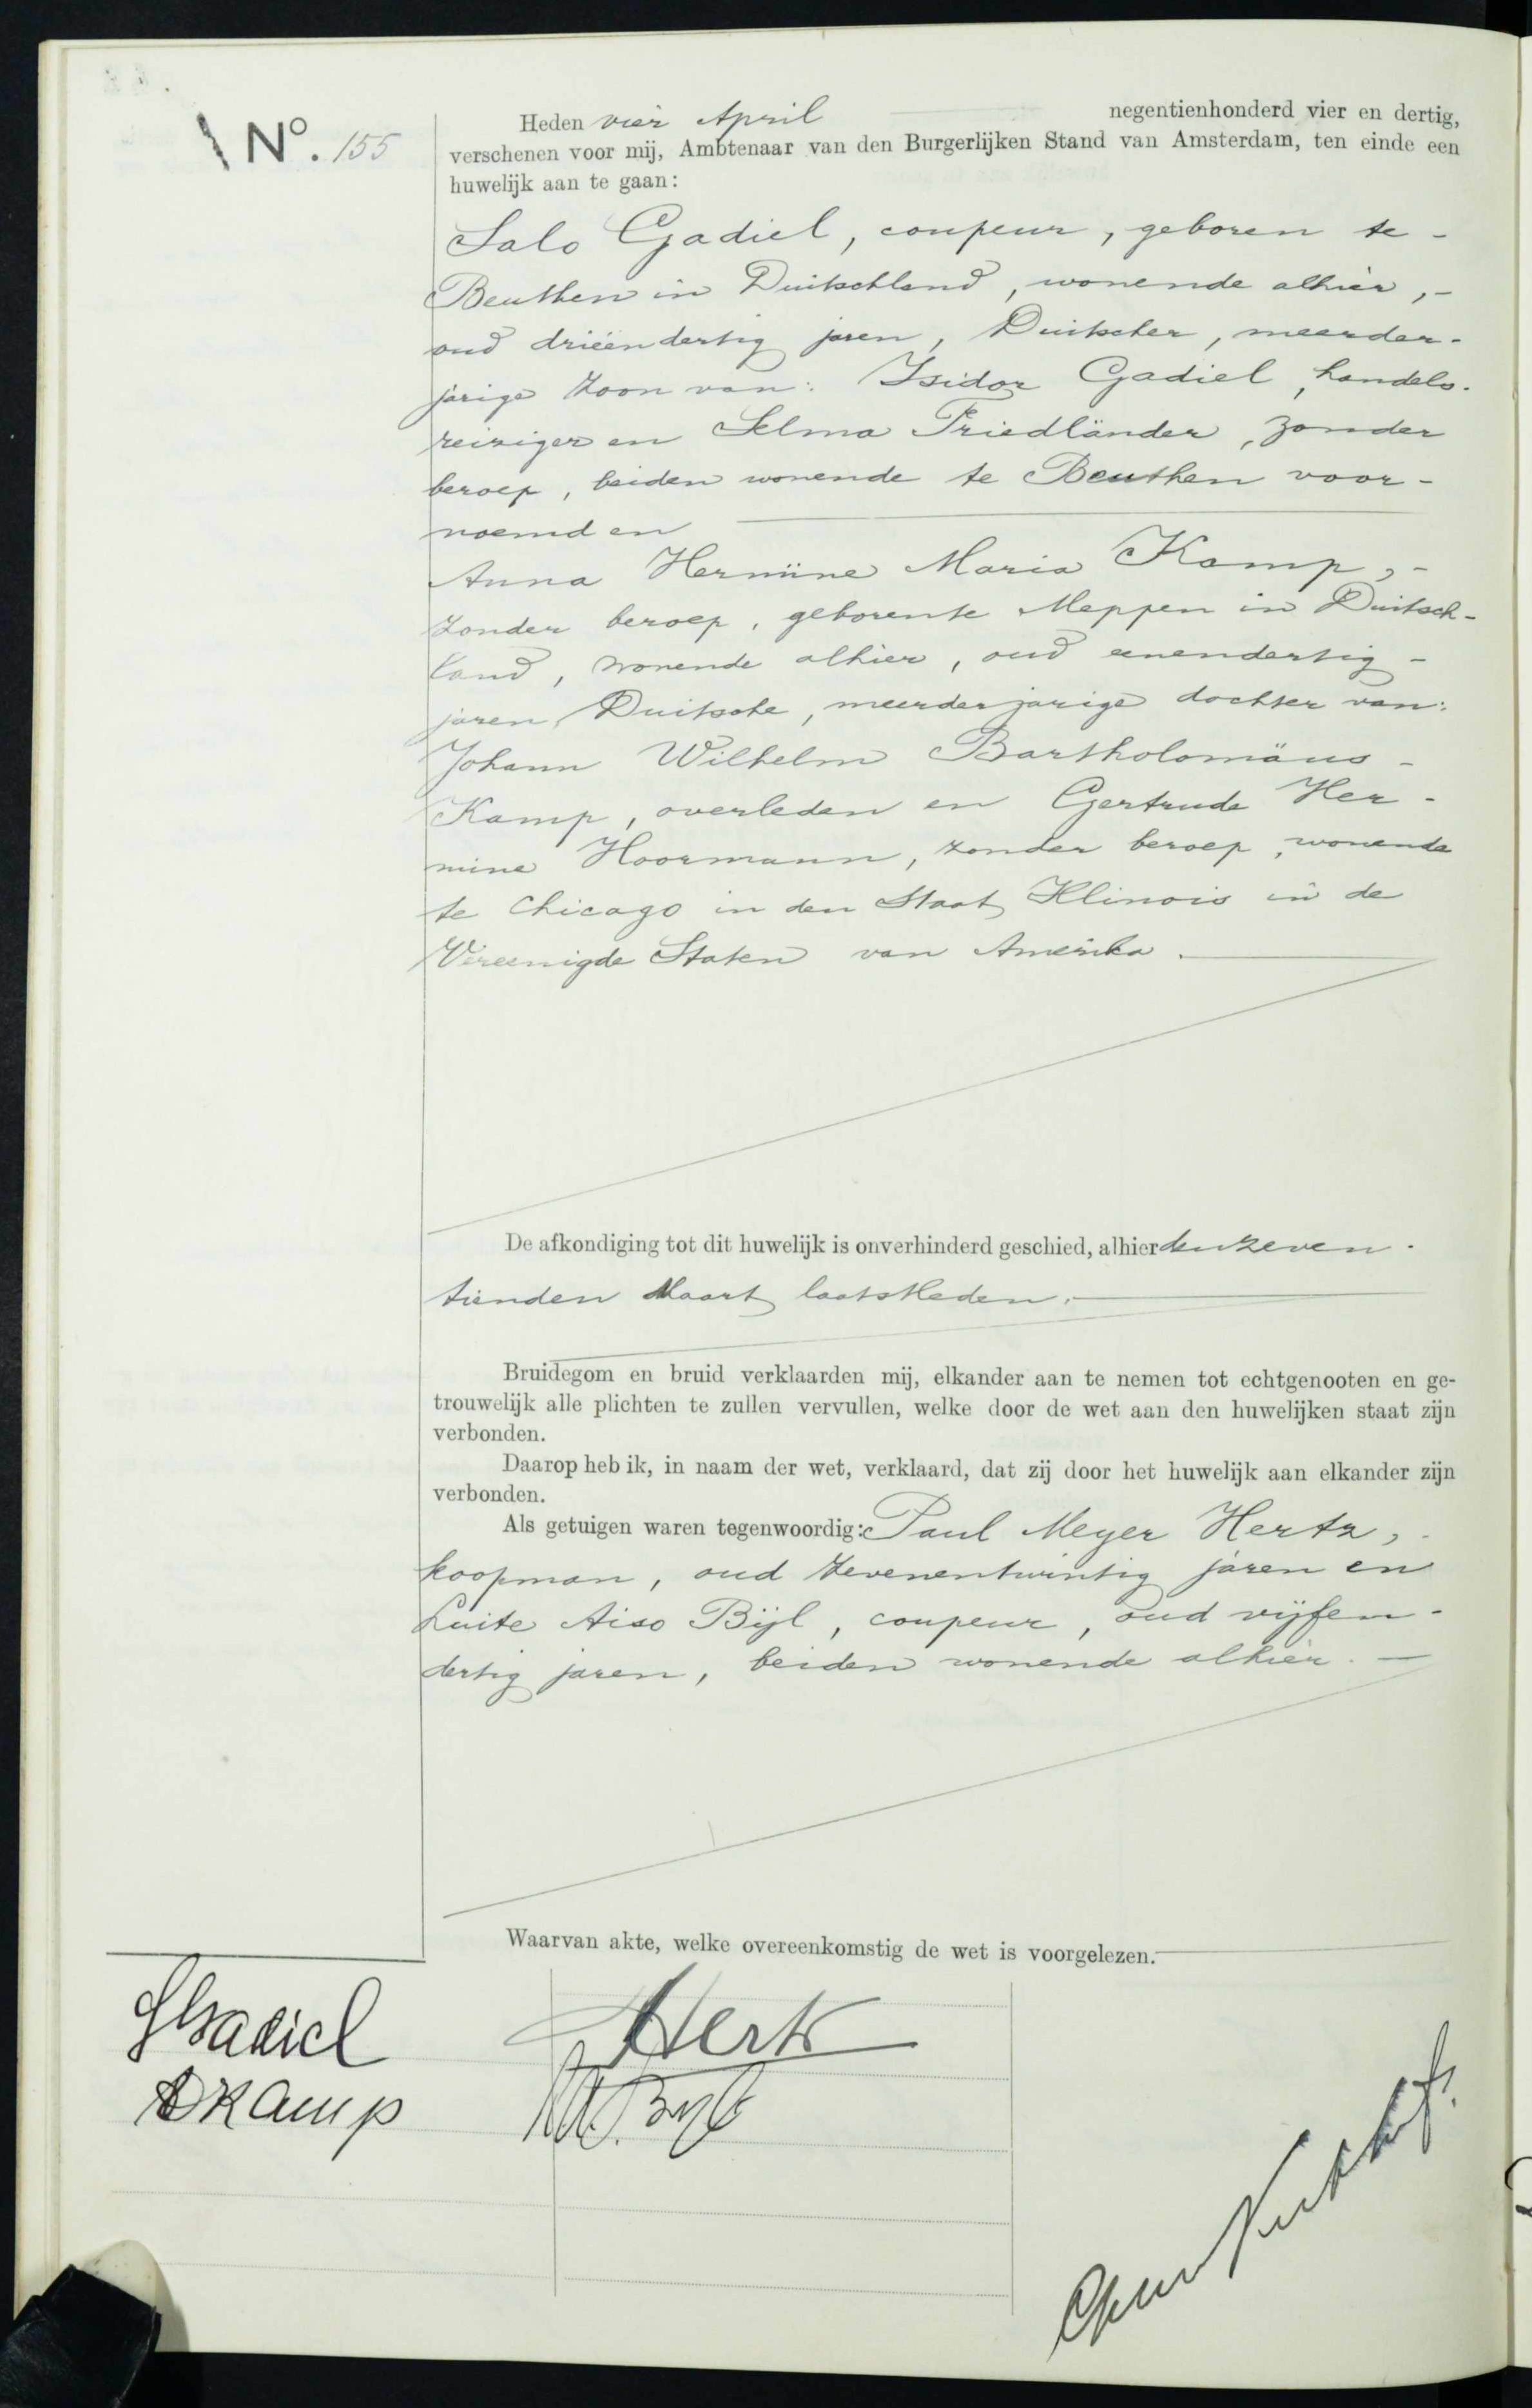 Nº. 155
Heden vier April negentienhonderd vier en dertig,
verschenen voor mij, Ambtenaar van den Burgerlijken Stand van Amsterdam, ten einde een
huwelijk aan te gaan:
Salo Gadiel, coupeur, geboren te -
Beuthen in Duitschland, wonende alhier, -
oud drieëndertig jaren, Duitscher, meerder-
jarige zoon van: Isidor Gadiel, handels-
reiziger en Selma Friedländer, zonder
beroep, beiden wonende te Beuthen voor-
noemd en
Anna Hermine Maria Kamp, -
zonder beroep, geboren te Meppen in Duitsch-
land, wonende alhier, oud eenendertig -
jaren, Duitsche, meerderjarige dochter van:
Johann Wilhelm Bartholomäus -
Kamp, overleden en Gertrude Her-
mine Hoormann, zonder beroep, wonende
te Chicago in den Staat Illinois in de
Vereenigde Staten van Amerika.
De afkondiging tot dit huwelijk is onverhinderd geschied, alhier den zeven-
tienden Maart laatstleden.
Bruidegom en bruid verklaarden mij, elkander aan te nemen tot echtgenooten en ge-
trouwelijk alle plichten te zullen vervullen, welke door de wet aan den huwelijken staat zijn
verbonden.
Daarop heb ik, in naam der wet, verklaard, dat zij door het huwelijk aan elkander zijn
verbonden.
Als getuigen waren tegenwoordig: Paul Meyer Hertz,
koopman, oud zevenentwintig jaren en
Luite Aiso Bijl, coupeur, oud vijfen-
dertig jaren, beiden wonende alhier. -
Waarvan akte, welke overeenkomstig de wet is voorgelezen.
SGadiel
Hertz
AKamp
Bijl